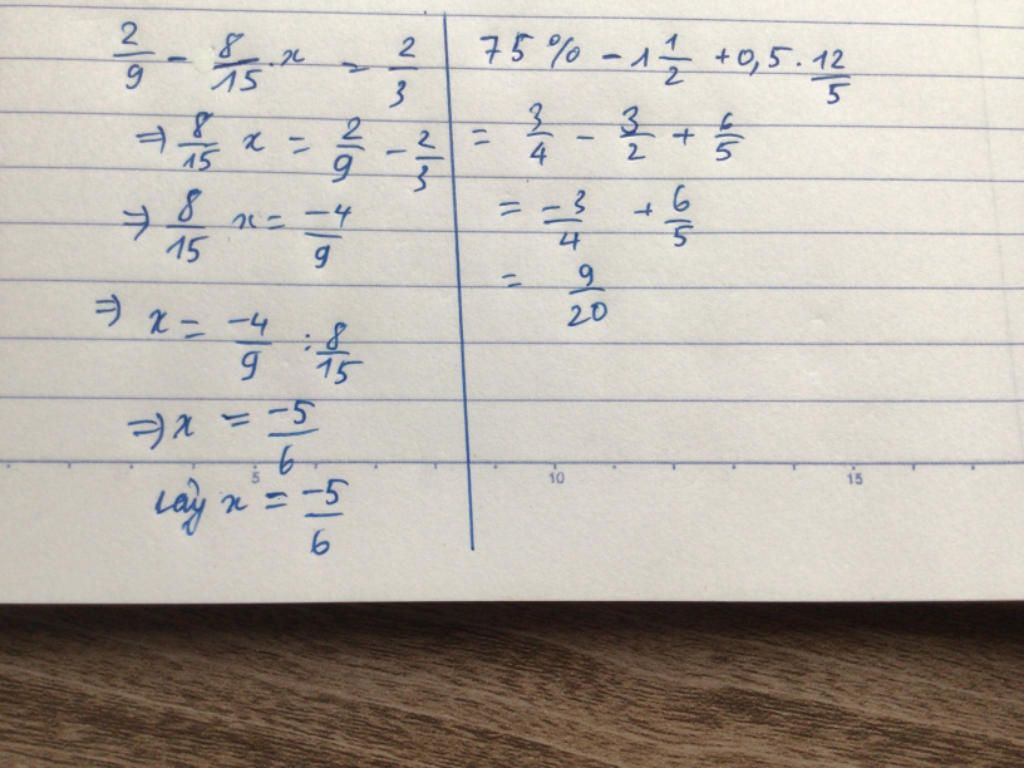 2/9 - 8/15 . x = 2/3
⇒ 8/15 x = 2/9 - 2/3
⇒ 8/15 x = -4/9
⇒ x = -4/9 : 8/15
⇒ x = -5/6
x = -5/6
75% - 1 1/2 + 0,5 . 12/5
= 3/4 - 3/2 + 6/5
= -3/4 + 6/5
= 9/20
5 10 15